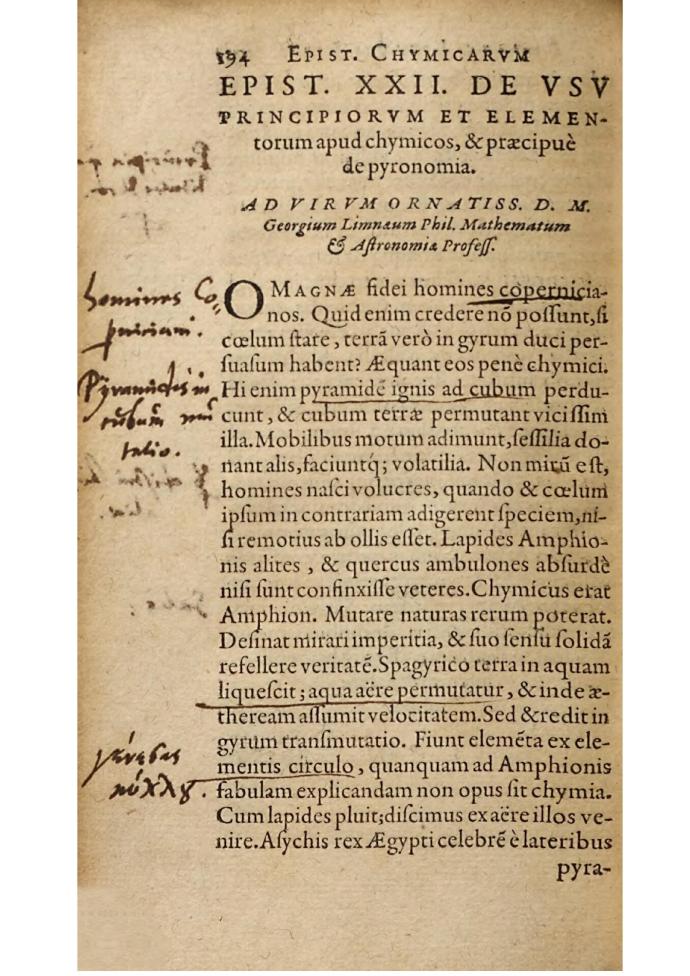 194 EPIST. CHYMICARVM
EPIST. XXII. DE VSV
PRINCIPIORVM ET ELEMEN-
torum apud chymicos, & præcipuè
de pyronomia.
AD VIRVM ORNATISS. D. M.
Georgium Limnæum Phil. Mathematum
& Aſtronomiæ Profeſſ.
O MAGNÆ fidei homines copernicia-
nos. Quid enim credere nõ poſſunt, ſi
cœlum ſtare, terrã verò in gyrum duci per-
ſuaſum habent? Æquant eos penè chymici.
Hi enim pyramidẽ ignis ad cubum perdu-
cunt, & cubum terræ permutant viciſſim
illa. Mobilibus motum adimunt, ſeſſilia do-
nant alis, faciuntq́; volatilia. Non mirũ eſt,
homines naſci volucres, quando & cœlum
ipſum in contrariam adigerent ſpeciem, ni-
ſi remotius ab ollis eſſet. Lapides Amphio-
nis alites, & quercus ambulones abſurdè
niſi ſunt confinxiſſe veteres. Chymicus erat
Amphion. Mutare naturas rerum poterat.
Deſinat mirari imperitia, & ſuo ſenſu ſolidã
refellere veritatẽ. Spagyrico terra in aquam
liqueſcit; aqua aëre permutatur, & inde æ-
theream aſſumit velocitatem. Sed & redit in
gyrum tranſmutatio. Fiunt elemẽta ex ele-
mentis circulo, quanquam ad Amphionis
fabulam explicandam non opus ſit chymia.
Cum lapides pluit; diſcimus ex aëre illos ve-
nire. Aſychis rex Ægypti celebrẽ è lateribus
pyra-
homines Co-
perniciani.
Pyramides in
cubum mu
tatio.